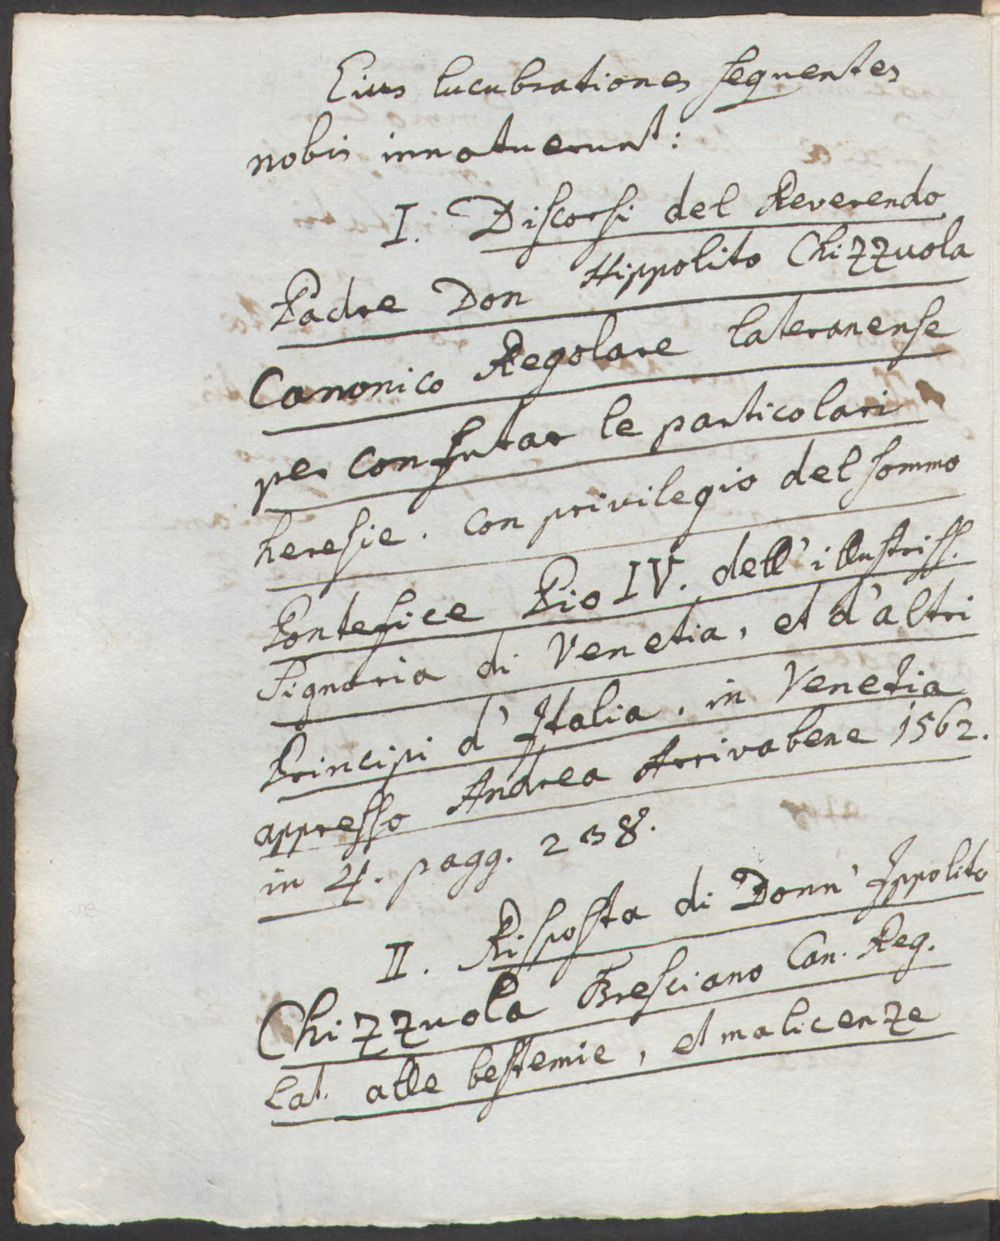 Eius lucubrationes sequentes
nobis innotuerunt:
I. Discorsi del Reverendo
Padre Don Hippolito Chizzuola
Canonico Regolare lateranense
per confutar le particolari
heresie. con privilegio del sommo
Pontefice Pio IV. dell' illustriss.
Signoria di Venetia, et d'altri
Principi d'Italia. in Venetia
appresso Andrea Arrivabene 1562.
in 4. pagg. 238.
II. Risposta di Donn' Ippolito
Chizzuola Bresciano Can. Reg.
Lat. alle bestemie, et malicenze